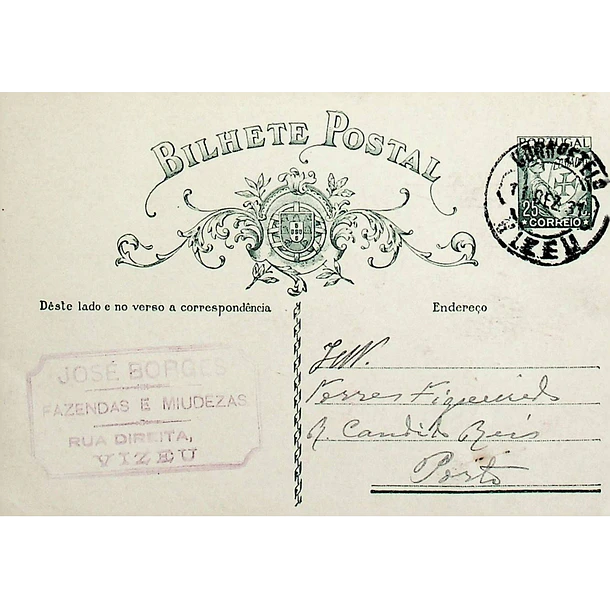 BILHETE POSTAL
PORTUGAL
25
CORREIO
CORREIOS
DEZ. 37
VIZEU
Dêste lado e no verso a correspondência
Endereço
JOSÉ BORGES
FAZENDAS E MIUDEZAS
RUA DIREITA,
VIZEU
Torres Figueiredo
R. Candido Reis
Porto